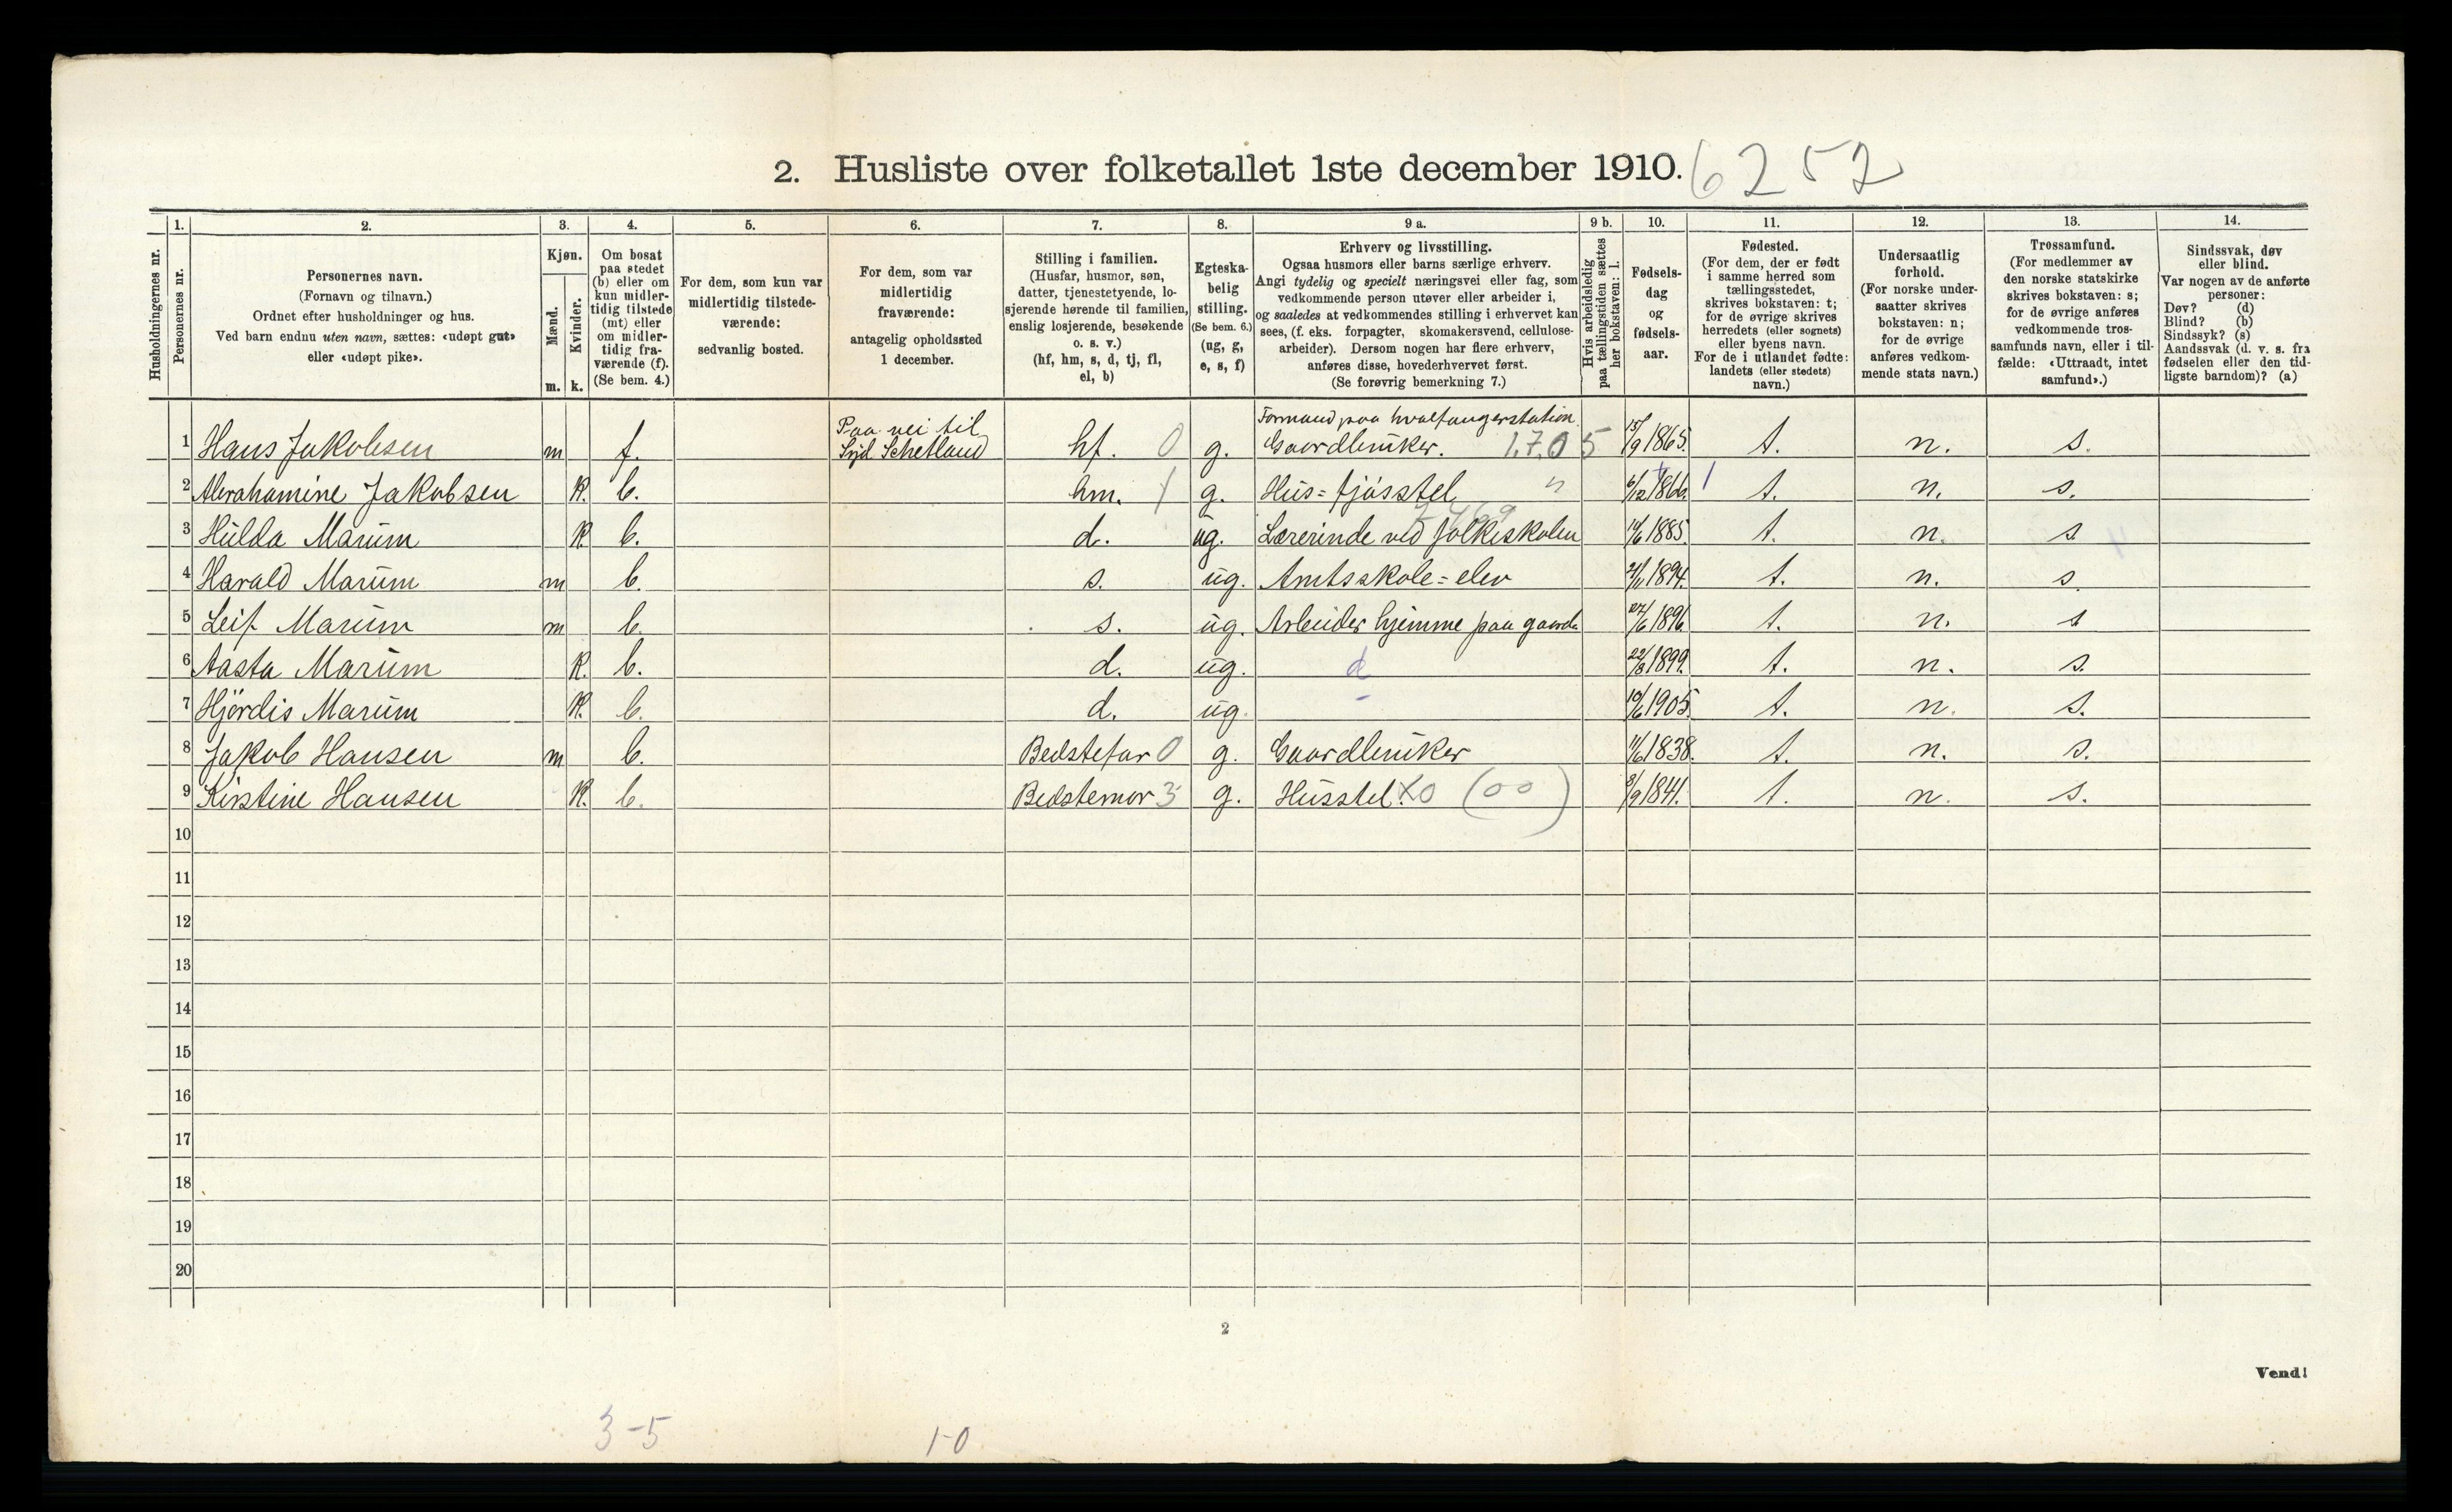 2. Husliste over folketallet 1ste december 1910. 6252
1. 2. 3. 4. 5. 6. 7. 8. 9 a. 9 b. 10. 11. 12. 13. 14.
Husholdningernes nr.
Personernes nr.
Personernes navn.
(Fornavn og tilnavn.)
Ordnet efter husholdninger og hus.
Ved barn endnu uten navn, sættes: «udøpt gut»
eller «udøpt pike».
Kjøn.
Mænd.
Kvinder.
m. k.
Om bosat
paa stedet
(b) eller om
kun midler-
tidig tilstede
(mt) eller
om midler-
tidig fra-
værende (f).
(Se bem. 4.)
For dem, som kun var
midlertidig tilstede-
værende:
sedvanlig bosted.
For dem, som var
midlertidig
fraværende:
antagelig opholdssted
1 december.
Stilling i familien.
(Husfar, husmor, søn,
datter, tjenestetyende, lo-
sjerende hørende til familien,
enslig losjerende, besøkende
o. s. v.)
(hf, hm, s, d, tj, fl,
el, b)
Egteska-
belig
stilling.
(Se bem. 6.)
(ug, g,
e, s, f)
Erhverv og livsstilling.
Ogsaa husmors eller barns særlige erhverv.
Angi tydelig og specielt næringsvei eller fag, som
vedkommende person utøver eller arbeider i,
og saaledes at vedkommendes stilling i erhvervet kan
sees, (f. eks. forpagter, skomakersvend, cellulose-
arbeider). Dersom nogen har flere erhverv,
anføres disse, hovederhvervet først.
(Se forøvrig bemerkning 7.)
Hvis arbeidsledig
paa tællingstiden sættes
her bokstaven: l.
Fødsels-
dag
og
fødsels-
aar.
Fødested.
(For dem, der er født
i samme herred som
tællingsstedet,
skrives bokstaven: t;
for de øvrige skrives
herredets (eller sognets)
eller byens navn.
For de i utlandet fødte:
landets (eller stedets)
navn.)
Undersaatlig
forhold.
(For norske under-
saatter skrives
bokstaven: n;
for de øvrige
anføres vedkom-
mende stats navn.)
Trossamfund.
(For medlemmer av
den norske statskirke
skrives bokstaven: s;
for de øvrige anføres
vedkommende tros-
samfunds navn, eller i til-
fælde: «Uttraadt, intet
samfund».)
Sindssvak, døv
eller blind.
Var nogen av de anførte
personer:
Døv? (d)
Blind? (b)
Sindssyk? (s)
Aandssvak (d. v. s. fra
fødselen eller den tid-
ligste barndom)? (a)
Paa vei til Formand paa hvalfangerstation
1 Hans Jakobsen m f. Syd Schetland hf. 0 g. Gaardbruker. 1.7.0 5 15/9 1865. t. n. s.
2 Abrahamine Jakobsen k. b. hm. 1 g. Hus= fjösstel " 6/12 1866. 1 t. n. s.
7469
3 Hulda Marum k b. d. ug. Lærerinde ved folkeskolen 1885. t. n. s
4 Harald Marum m b. s. ug. Amtsskole=elev 1894. t. n. s.
5 Leif Marum m b. s. ug. Arbeider hjemme paa gaard. 27/6 1896 t. n. s
6 Aasta Marum k. b. d. ug. d 22/8 1899. t. n. s.
7 Hjördis Marum k. b. d. ug. - 10/6 1905. t. n. s.
8 Jakob Hansen m b. Bedstefar 0 g. Gaardbruker 11/6 1838. t. n. s.
9 Kirstine Hansen k. b. Bedstemor 3 g. Husstel. X0 (00) 8/9 1841. t. n. s.
10
11
12
13
14
15
16
17
18
19
20
2
Vend!
3-5 1-0